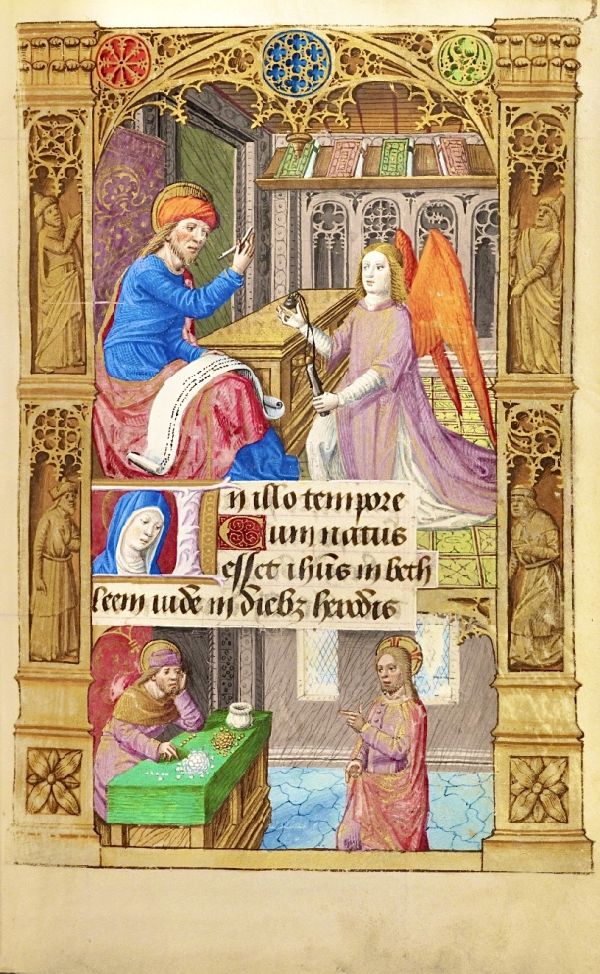 In illo tempore
Cum natus
esset ihūs in beth
leem iude in diebꝫ herodis